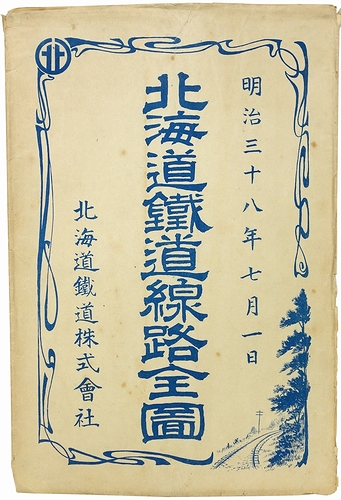 明治三十八年七月一日
北海道鐵道線路全圖
北海道鐵道株式會社